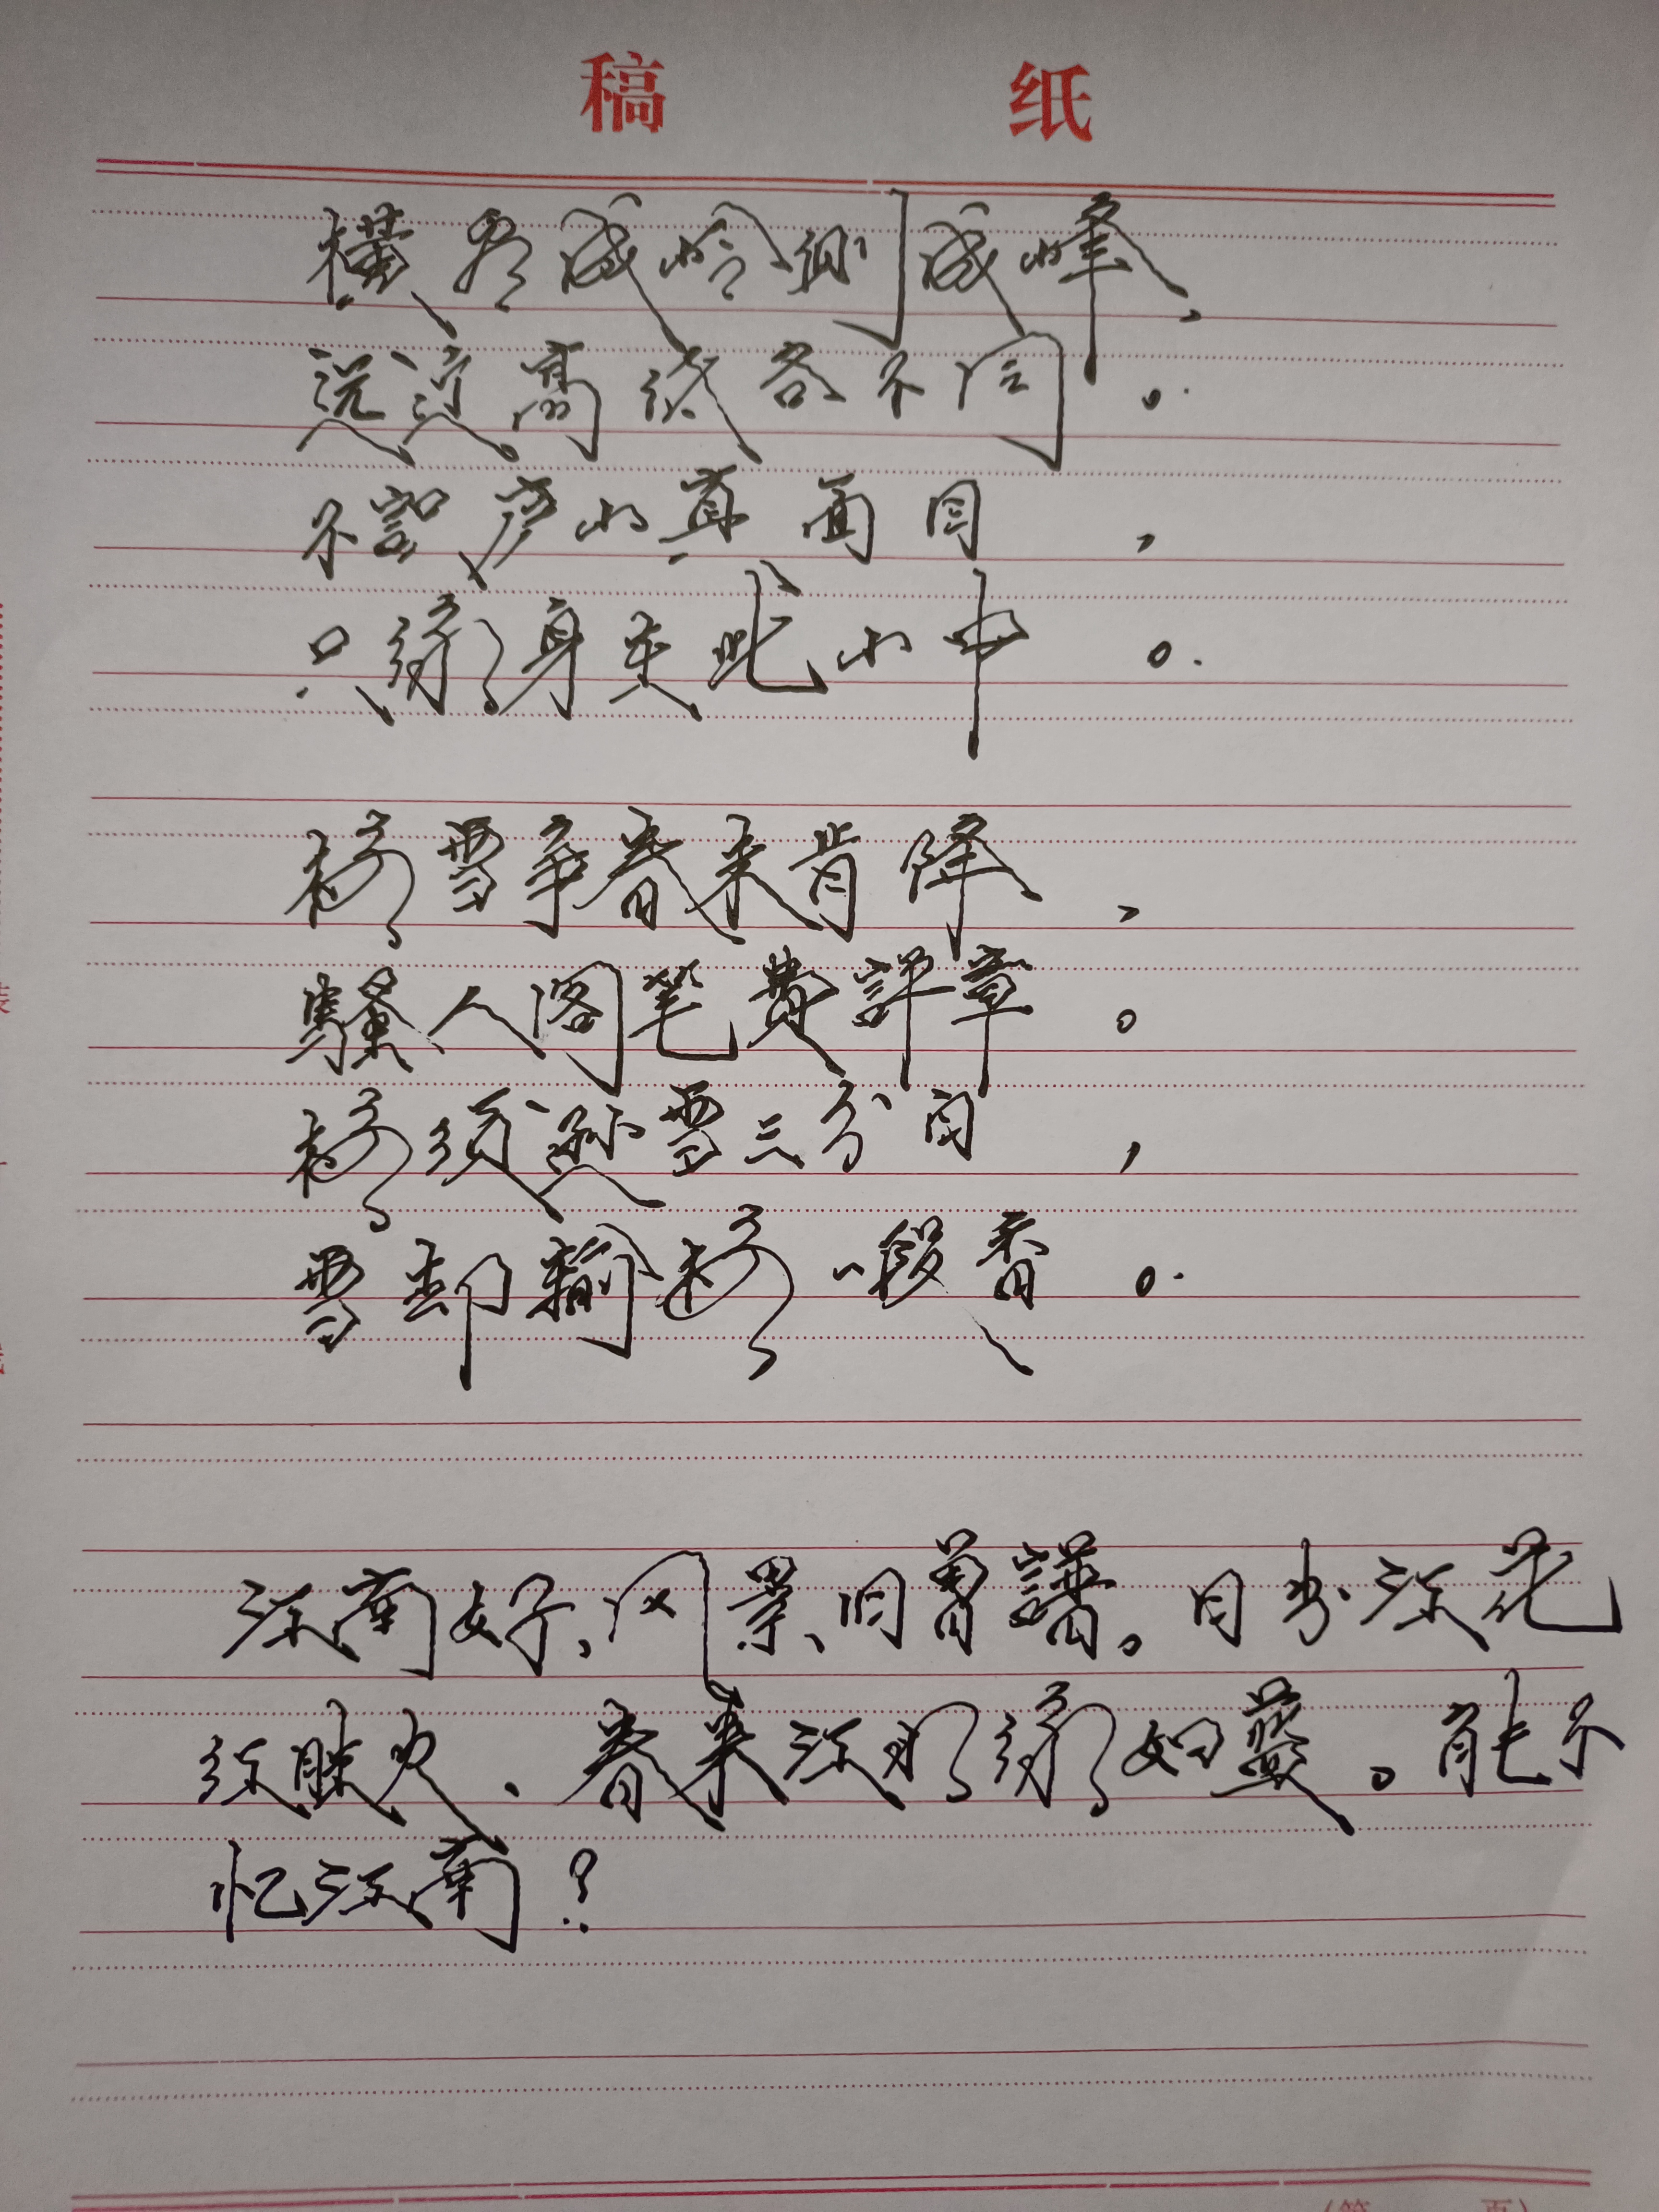 稿 纸
横看成岭侧成峰,
远近高低各不同。
不识庐山真面目,
只缘身在此山中。
梅雪争春未肯降,
骚人阁笔费评章。
梅须逊雪三分白,
雪却输梅一段香。
江南好、风景旧曾谙。日出江花
红胜火、春来江水绿如蓝。能不
忆江南?
(第 页)